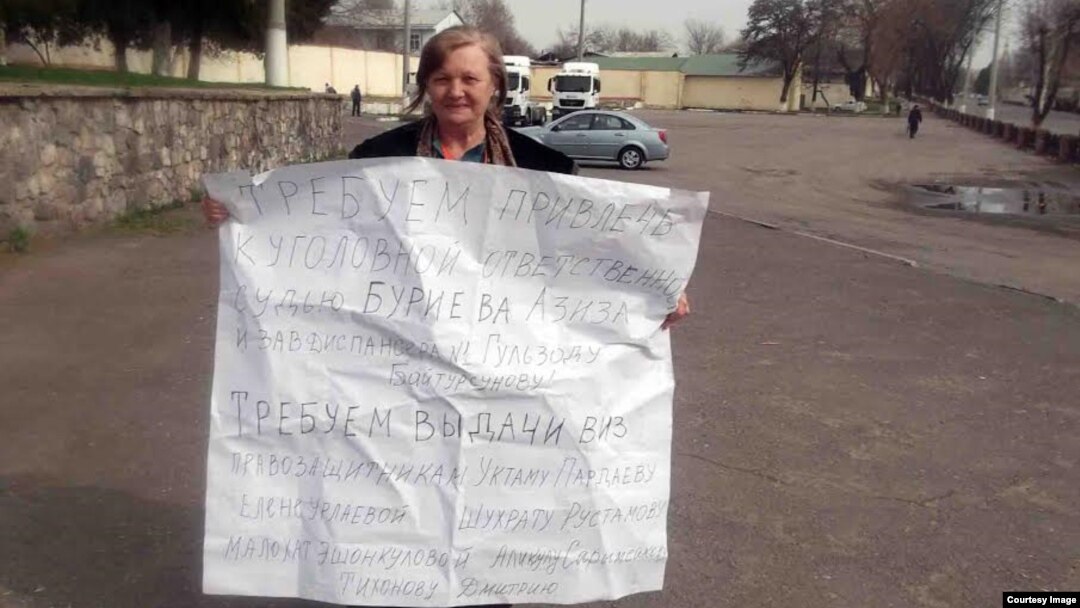 ТРЕБУЕМ ПРИВЛЕЧЬ
К УГОЛОВНОЙ ОТВЕТСТВЕННО
СУДЬЮ БУРИЕВА АЗИЗА
И ЗАВ ДИСПАНСЕРА №1 ГУЛЬЗОДУ
БАЙТУРСУНОВУ!
ТРЕБУЕМ ВЫДАЧИ ВИЗ
ПРАВОЗАЩИТНИКАМ УКТАМУ ПАРДАЕВУ
ЕЛЕНЕ УРЛАЕВОЙ ШУХРАТУ РУСТАМОВУ
МАЛОХАТ ЭШОНКУЛОВОЙ
ТИХОНОВУ ДМИТРИЮ
Courtesy Image